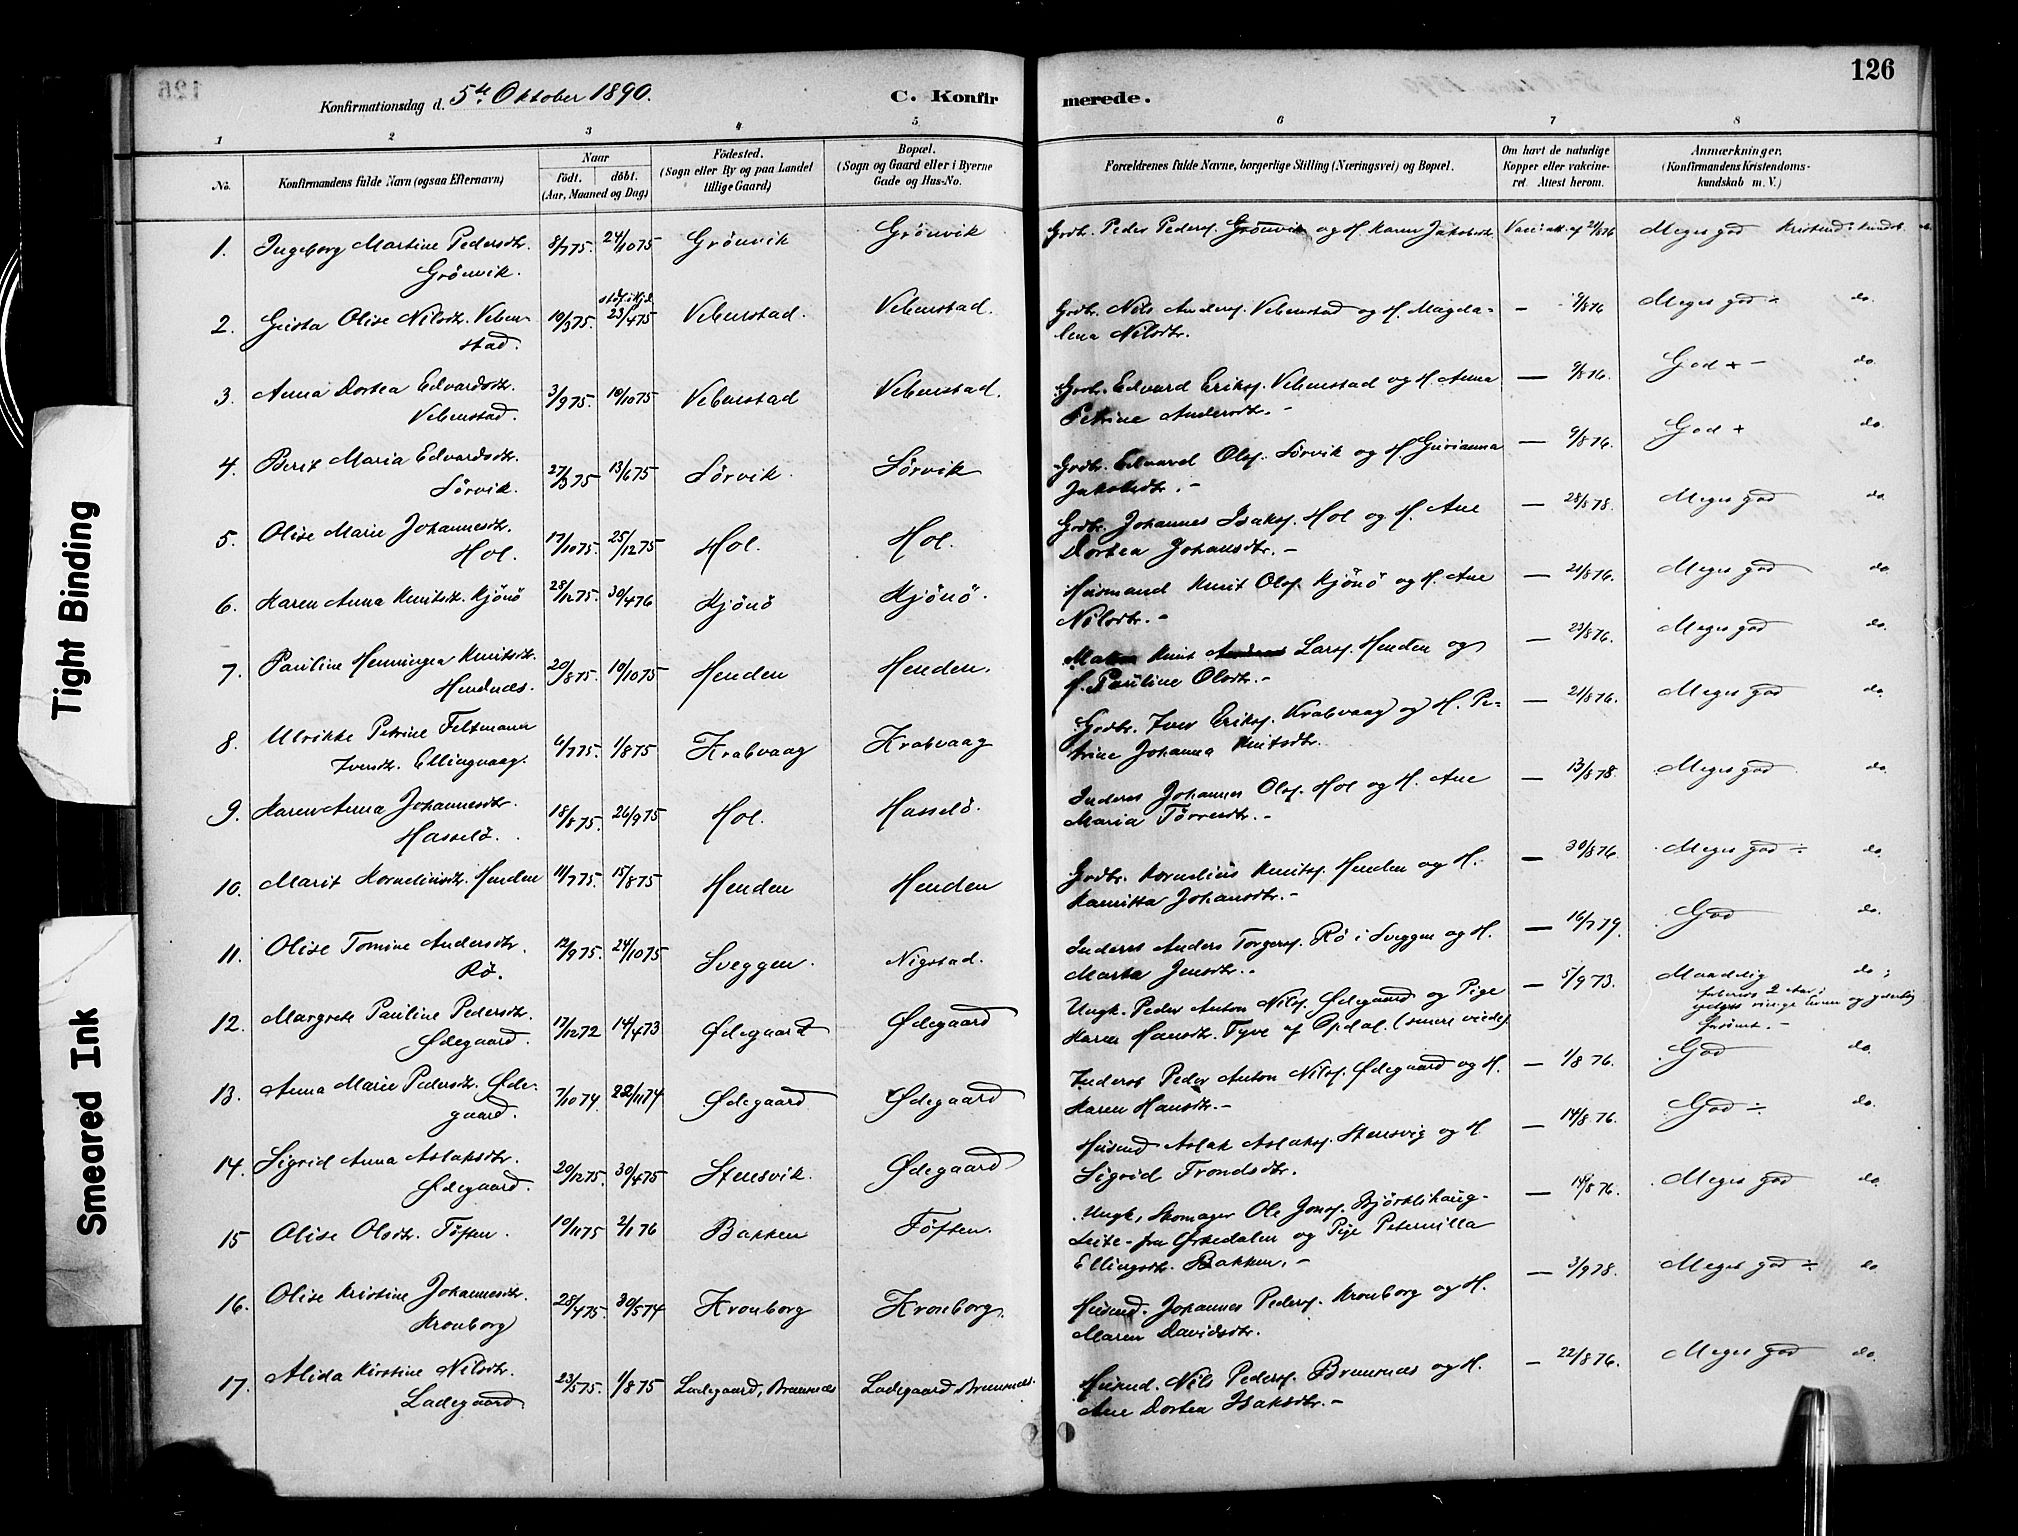 126
Konfirmationsdag d. 5te Oktober 1890.
C. Konfirmerede.
1 2 3 4 5 6 7 8
No. Konfirmandens fulde Navn (ogsaa Efternavn) Naar født. døbt. (Aar, Maaned og Dag) Fødested. (Sogn eller By og paa Landet tillige Gaard) Bopæl. (Sogn og Gaard eller i Byerne Gade og Hus-No. Forældrenes fulde Navne, borgerlige Stilling (Næringsvei) og Bopæl. Om havt de naturlige Kopper eller vakcineret. Attest herom. Anmærkninger. (Konfirmandens Kristendomskundskab m. V.)
1. Ingeborg Martine Pedersdtr. 8/7 75. 24/10 75 Grönvik Grönvik Grdbr. Peder Peders. Grönvik og H. Karen Jakobsdtr. Meget god
Grönvik.
2. Olise Nilsdtr. Veben- 10/3 75. 23/4 75 Vebenstad. Vebenstad. Grdbr. Nils Anders. Vebenstad og H. Magda- — 9/8 76 Meget god ÷ do.
stad. lena Nilsdtr.
3. Anna Dortea Edvardsdtr. 3/9 75. 10/10 75 Vebenstad Vebenstad. Grdbr. Edvard Eriks. Vebenstad og H. Anna — 9/8 76. God + - do.
Vebenstad. Petrine Andersdtr. -
4. Berit Maria Edvardsdtr. 27/3 75 13/6 75 Sörvik. Sörvik Grdbr. Edvard Ols. Sörvik og H. Gurianna — 9/8 76. God + do.
Sörvik. Jakobsdtr. -
5. Olise Marie Johannesdtr. 17/10 75. 25/12 75 Hol. Hol. Grdbr. Johannes Isaks. Hol og H. Ane — 28/8 78. Meget god do.
Hol. Dortea Johansdtr. -
6. Karen Anna Knutsdtr. Kjönö 28/12 75. 30/4 76 Kjönö Kjönö. Husmand Knut Ols. Kjönö og H. Ane — 21/8 76. Meget god do
Nilsdtr. -
7. Pauline Henningea Knutsdtr. 20/8 75. 10/10 75 Henden Henden. Knut Lars. Henden og — 23/8 76. Meget god do.
Hendnes. H. Pauline Olsdtr. -
8. Ulrikke Petrine Feltmann 6/7 75. 1/8 75 Krabvaag Krabvaag Grdbr. Iver Eriks. Krabvaag og H. Pe- — 21/8 76. Meget god do.
Iversdtr. Ellingvaag. trine Johanna Knutsdtr.
9. Karen Anna Johannesdtr. 18/8 75. 26/9 75 Hol. Hasselö. Inderst Johannes Ols. Hol og H. Ane — 13/8 78. Meget god do.
Hasselö. Maria Törresdtr. -
10. Marit Korneliusdtr. Henden 11/7 75. 15/8 75 Henden Henden Grdbr. Kornelius Knuts. Henden og H. — 30/8 76. Meget god ÷ do.
Johansdtr. -
11. Olise Tomine Andersdtr. 12/9 75. 24/10 75 Sveggen. Nigstad. Inderst Anders Torgers. Rö i Sveggen og H. — 16/7 79. God do.
Rö. Marta Jensdtr. -
12. Margrete Pauline Pedersdtr. 17/12 72 14/4 73 Ødegaard Ødegaard Ungk. Peder Anton Nils. Ødegaard og Pige 5/9 73. Maadelig do;
Ødegaard. Karen Hansdtr. Tyve af Opdal. (senere viede)
13. Anna Marie Pedersdtr. Øde- 7/10 74. 22/11 74 Ødegaard Ødegaard Inderst Peder Anton Nils. Ødegaard og H. — 1/8 76. God do.
gaard. Karen Hansdtr. -
14. Sigrid Anna Aslaksdtr. 20/12 75. 30/4 75 Stensvik. Ødegaard Husmd Aslak Aslaks. Stensvig og H. — 14/8 76. God ÷ do.
Ødegaard. Sigrid Trondsdtr.
15 Olise Olsdtr. Töften. 19/11 75 2/1 76 Bakken Töften. Ungk, Skomager Ole Jons. Björklihaug- — 14/8 76. Meget god do.
Leite- fra Ørkedalen og Pige Peternilla
Ellingsdtr. Bakken. -
16. Olise Kristine Johannesdtr. 28/4 75. 30/5 74 Kronborg Kronborg. Husmd. Johannes Peders. Kronborg og H. — 3/9 78. Meget god ÷ do
Kronborg Maren Davidsdtr.
17. Alida Kirstine Nilsdtr. 23/5 75. 1/8 75 Ladegaard, Bremsnes Ladegaard Bremsnes. Husmd. Nils Peders. Bremsnes og H. — 22/8 76. Meget god do.
Ladegaard. Ane Dortea Isaksdtr. -
Tight Binding
Smeared Ink